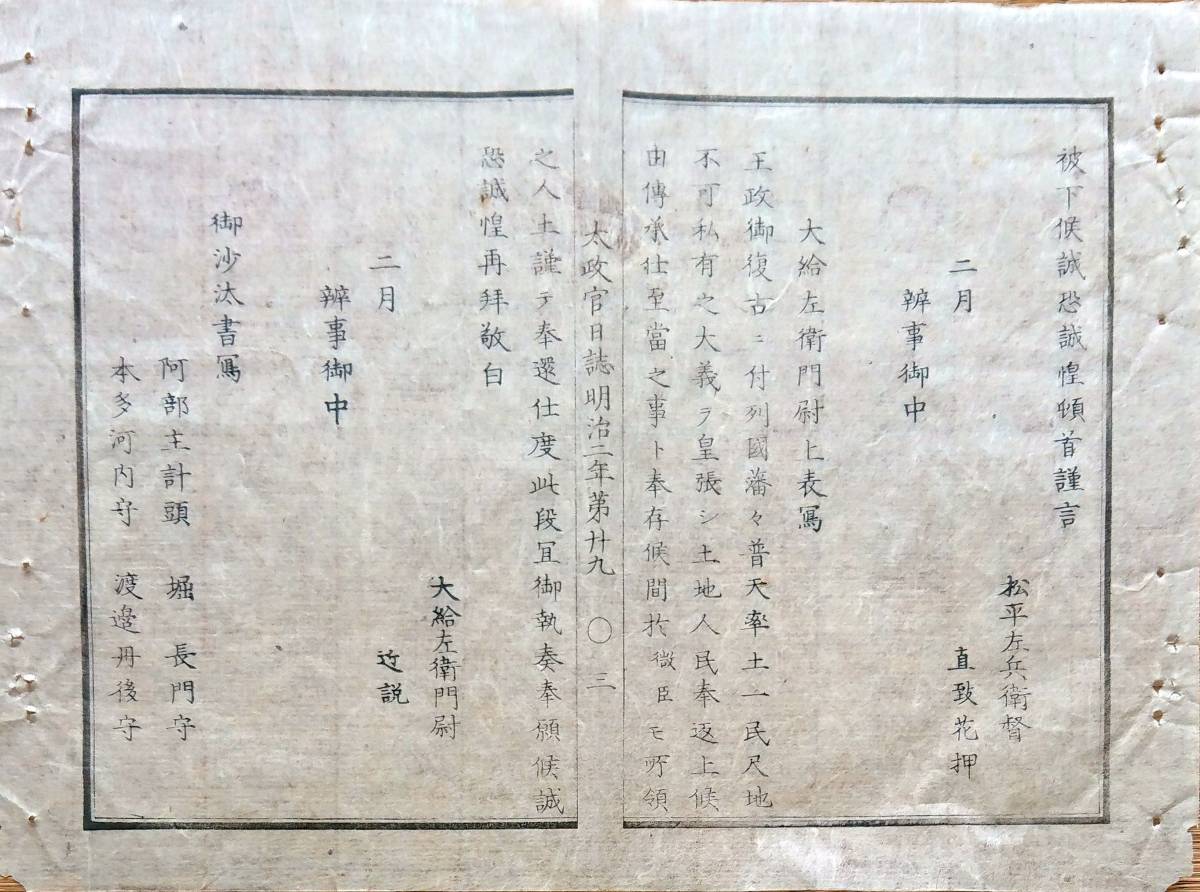 被下候誠恐誠惶頓首謹言
松平左兵衛督
二月
直致花押
辨事御中
大給左衛門尉上表寫
王政御復古ニ付列國藩々普天率土一民尺地
不可私有之大義ヲ皇張シ土地人民奉返上候
由傳承仕至當之事ト奉存候間於微臣モ所領
太政官日誌明治二年第廿九 〇 三
之人土謹テ奉還仕度此段冝御執奏奉願候誠
恐誠惶再拜敬白
大給左衛門尉
二月
近説
辨事御中
御沙汰書寫
阿部主計頭 堀 長門守
本多河内守 渡邉丹後守